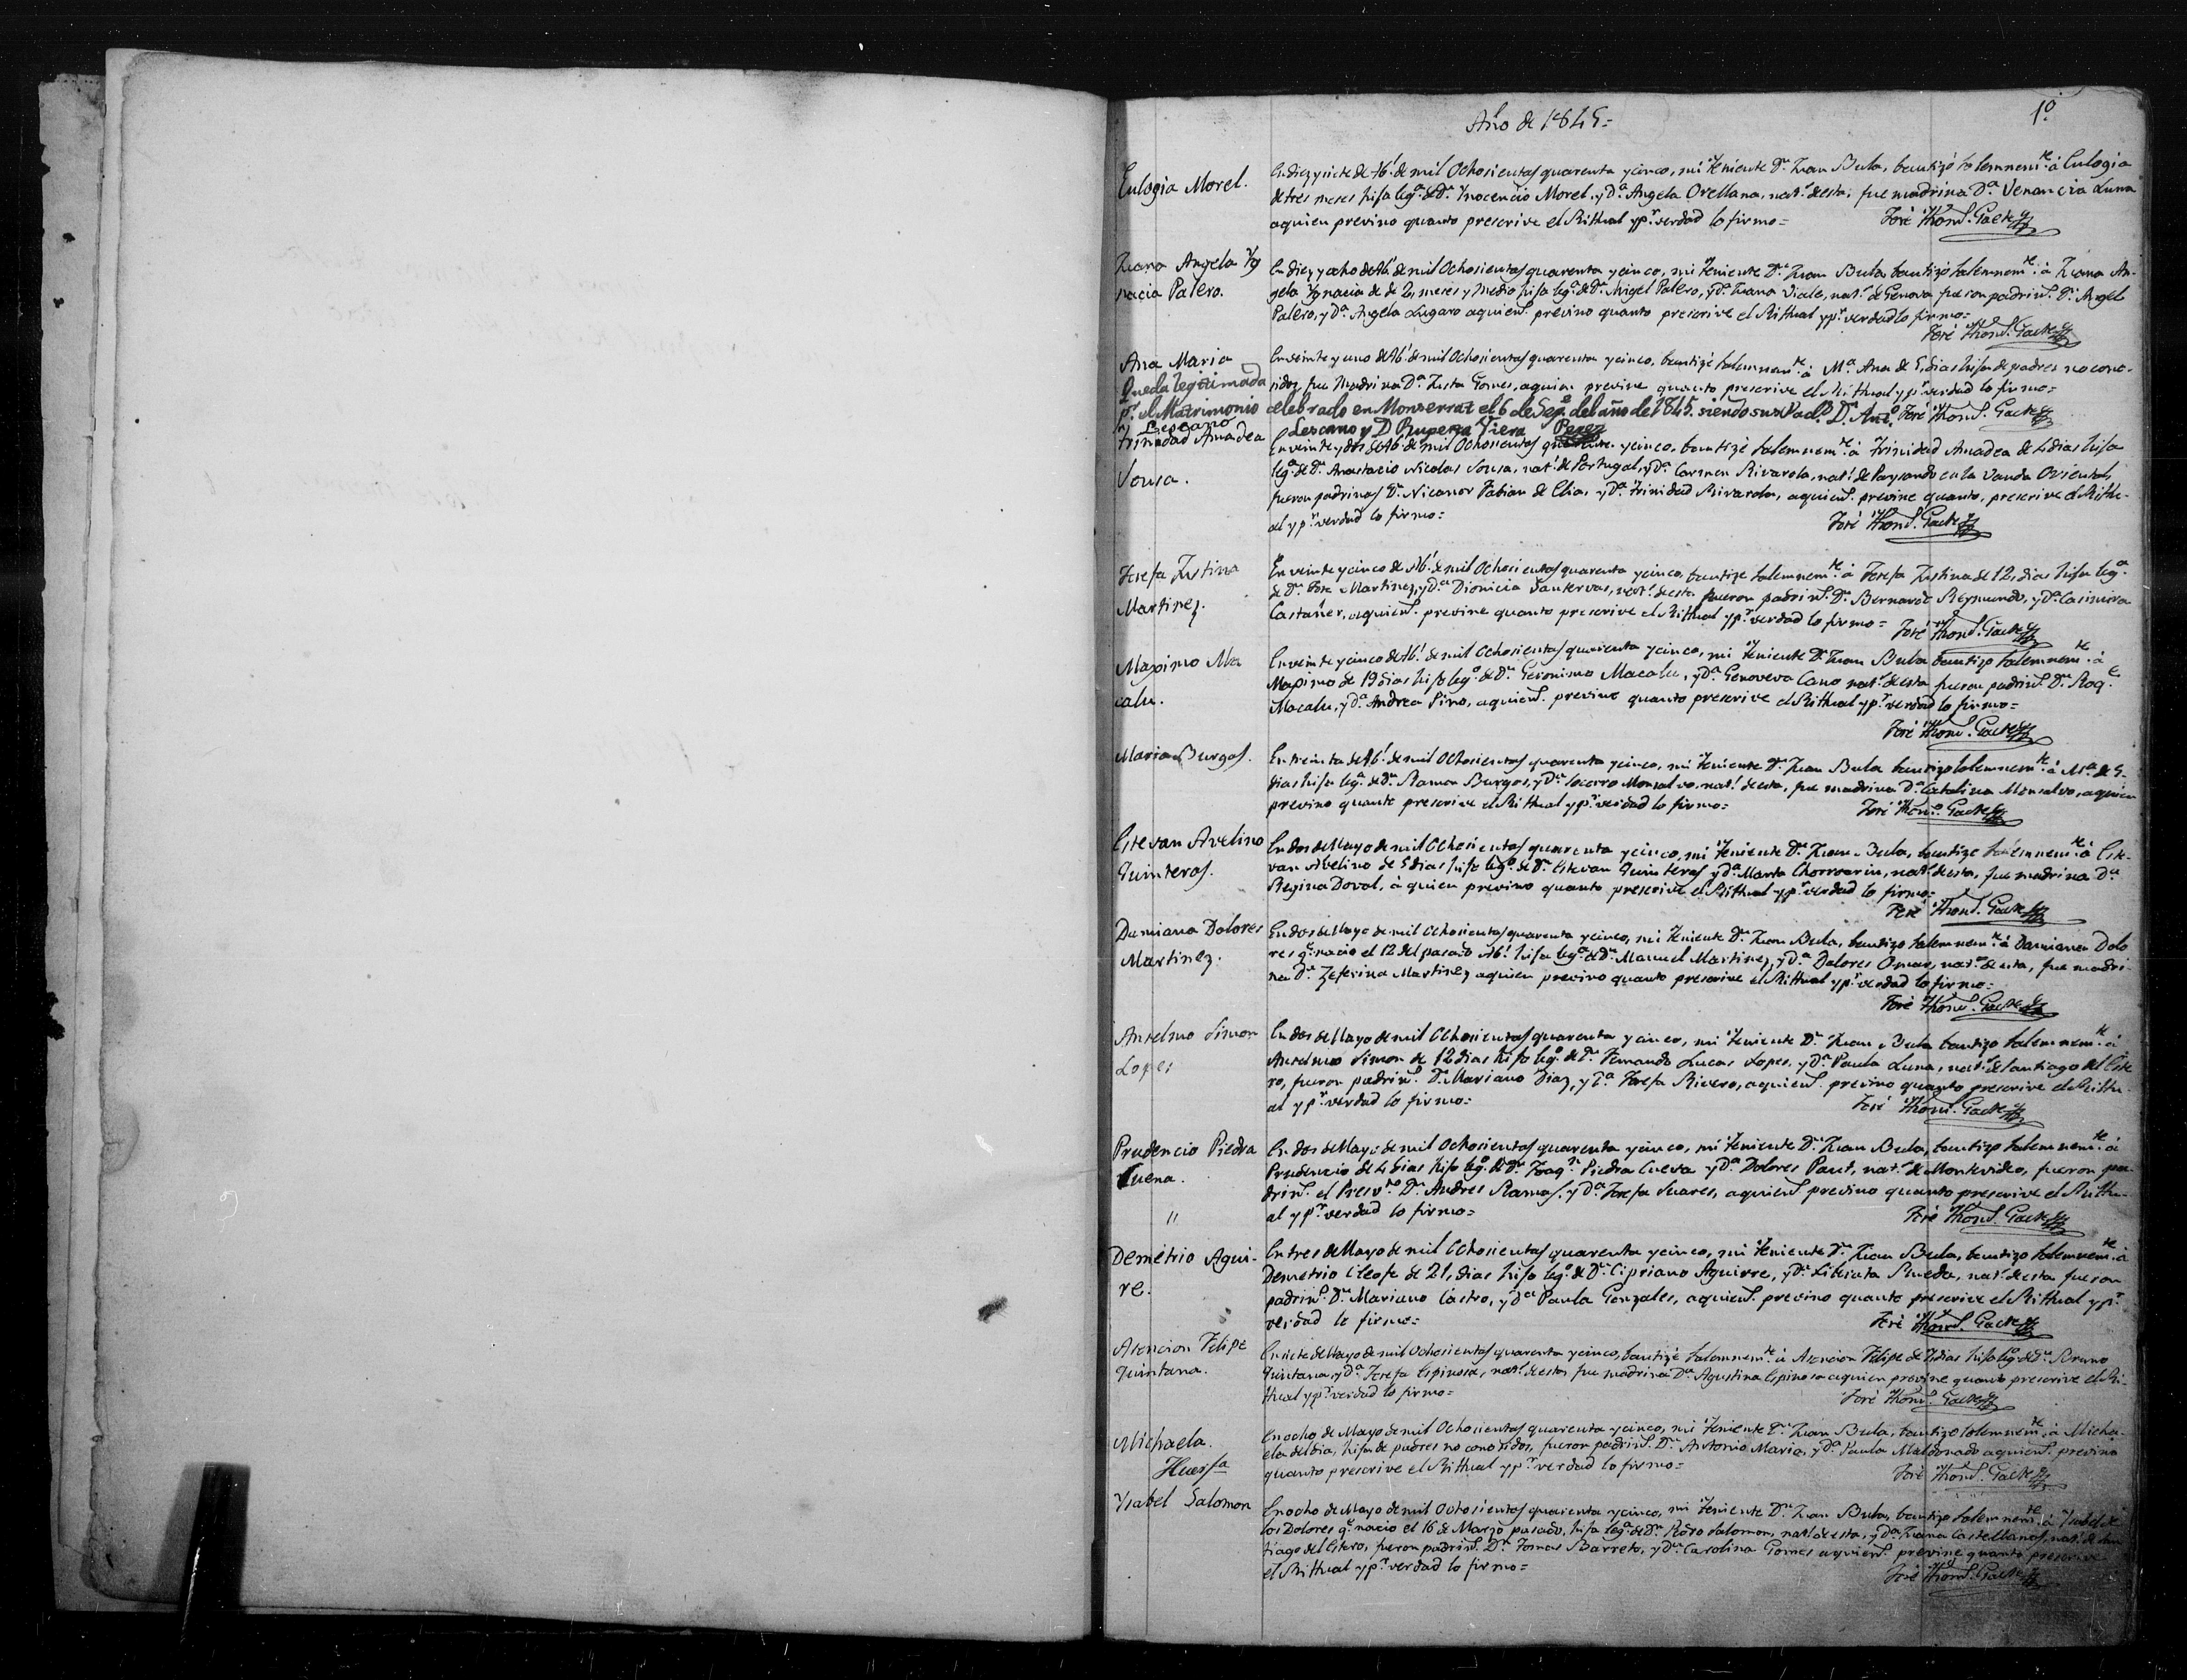 Año de 1845=
1º
Eulogia Morel.
En diez y siete de Ab.l de mil Ochosientos quarenta y cinco, mi Teniente Dn Juan Bula, bautizó solemnem.te à Eulogia
de tres meses hija leg.a de Dn Ynocencio Morel, y Da Angela Orellana, nat.s de esta, fue madrina Da Venancia Luna
a quien previno quanto prescrive el Rithual y p.r verdad lo firmo=
José Thom.s Gaete
Juana Angela Yg
nacia Palero.
En diez y ocho de Ab.l de mil Ochosientos quarenta y cinco, mi Teniente Dn Juan Bula bautizó solemnem.te à Juana An-
gela Ygnacia de 2, meses y medio hija leg.a de Dn Angel Palero, y Da Juana Viale, nat.s de Genova fueron padrin.s Dn Angel
Palero, y Da Angela Lugaro a quien.s previno quanto prescrive el Rithual y p.r verdad lo firmo=
José Thom.s Gaete
Ana Maria
En veinte y uno de Ab.l de mil Ochosientos quarenta y cinco, bautizé solemnem.te à Ma Ana de 5, dias hija de padres no cono-
sidos fue Madrina Da Justa Gomes, a quien previne quanto prescrive el Rithual y p.r verdad lo firmo=
José Thom.s Gaete
Queda legitimada
p.r el Matrimonio celebrado en Monserrat el 6 de Sep.e del año de 1845. siendo sus Pad.s Dn Ant.o
Lescano
Lescano y Da Ruperta Viera Perez
Trinadad Amadea
Sousa.
En veinte y dos de Ab.l de mil Ochosientos quarenta y cinco, bautizé solemnem.te à Trinidad Amadea de 4 dias hija
leg.a de Dn Anastacio Nicolas Sousa, nat.l de Portugal, y Da Carmen Rivarola, nat.l de Paysando en la Vanda Oriental,
fueron padrinos Dn Nicanor Fabian de Elia, y Da Trinidad Rivarola, a quien.s previne quanto, prescrive el Rithu-
al y p.r verdad lo firmo=
José Thom.s Gaete
Josefa Justina
Martinez.
En veinte y cinco de Ab.l de mil Ochosientos quarenta y cinco, bautize solemnem.te à Josefa Justina de 12, dias hija leg.a
de Dn José Martinez, y Da Dionicia Santervas, nat.s de esta fueron padrin.s Dn Bernardo Reymundo, y Da Casimira
Castañer, a quien.s previne quanto prescrive el Rithual y p.r verdad lo firmo=
José Thom.s Gaete
Maximo Ma
calu.
En veinte y cinco de Ab.l de mil Ochosientos quarienta y cinco, mi Teniente Dn Juan Bula bautizo solemnem.te à
Maximo de 19 dias hijo leg.o de Dn Geronimo Macalu, y Da Genoveva Cano nat.s de esta fueron padrin.s Dn Roq.e
Macalu, y Da Andrea Pino, a quien.s previno quanto prescrive el Rithual y p.r verdad lo firmo=
José Thom.s Gaete
Maria Burgos.
En treinta de Ab.l de mil Ochosientos quarenta y cinco, mi Teniente Dn Juan Bula bautizo solemnem.te à Ma de 5-
dias hija leg.a de Dn Ramon Burgos, y Da Socorro Monsalvo, nat.s de esta, fue madrina Da Catalina Monsalvo, a quien
previno quanto prescrive el Rithual y p.r verdad lo firmo=
José Thom.s Gaete
Estevan Avelino
Quinteros.
En dos de Mayo de mil Ochosientos quarenta y cinco, mi Teniente Dn Juan Bula, bautizo solemnem.te à Este-
van Avelino de 5 dias hijo leg.o de Dn Estevan Quinteros y Da Marta Chorroarin, nat.s de esta, fue madrina Da
Regina Doval, à quien previno quanto prescrive el Rithual y p.r verdad lo firmo=
José Thom.s Gaete
Damiana Dolores
Martinez.
En dos de Mayo de mil Ochosientos quarenta y cinco, mi Teniente Dn Juan Bula, bautizo solemnem.te à Damiana Dolo
res q.e nacio el 12 del pasado Ab.l hija leg.a de Dn Manuel Martinez, y Da Dolores Omar, nat.s de esta, fue madri-
na Da Zeferina Martinez a quien previno quanto prescrive el Rithual y p.r verdad lo firmo=
José Thom.s Gaete
Anselmo Simon
Lopes
En dos de Mayo de mil Ochosientos quarenta y cinco, mi Teniente Dn Juan Bula bautizo solemnem.te à
Anselmo Simon de 12 dias hijo leg.o de Dn Fernando Lucas Lopes, y Da Paula Luna, nat.s de Santiago del Este
ro, fueron padrin.s Dn Mariano Diaz, y Da Josefa Rivero, a quien.s previno quanto prescrive el Rithu-
al y p.r verdad lo firmo=
José Thom.s Gaete
Prudencio Piedra
Cueva.
"
En dos de Mayo de mil Ochosientos quarenta y cinco, mi Teniente Dn Juan Bula, bautizo solemnem.te à
Prudencio de 4 dias hijo leg.o de Dn Joaq.n Piedra Cueva y Da Dolores Paut, nat.s de Montevideo, fueron pa-
drin.s el Presv.ro Dn Andres Ramos, y Da Josefa Suares, a quien.s previno quanto prescrive el Rithu-
al y p.r verdad lo firmo=
José Thom.s Gaete
Demetrio Agui-
re.
En tres de Mayo de mil Ochosientos quarenta y cinco, mi Teniente Dn Juan Bula, bautizo solemnem.te à
Demetrio Cleofe de 21, dias hijo leg.o de Dn Cipriano Aguirre, y Da Liberata Rueda, nat.s de esta fueron
padrin.s Dn Mariano Castro, y Da Paula Gonzales, a quien.s previno quanto prescrive el Rithual y p.r
verdad lo firmo=
José Thom.s Gaete
Asencion Felipe
Quintana.
En siete de Mayo de mil Ochosientos quarenta y cinco, bautizé solemnem.te à Asencion Felipe de 7, dias hijo leg.o de Dn Bruno
Quintana, y Da Josefa Espinosa, nat.s de esta, fue madrina Da Agustina Espinosa a quien previne quanto prescrive el Ri-
thual y p.r verdad lo firmo=
José Thom.s Gaete
Michaela.
Huerf.a
En ocho de Mayo de mil Ochosientos quarenta y cinco, mi Teniente Dn Juan Bula, bautizo solemnem.te à Micha-
ela del dia, hija de padres no conosidos, fueron padrin.s Dn Antonio Maria, y Da Paula Maldonado a quien.s previno
quanto prescrive el Rithual y p.r verdad lo firmo=
José Thom.s Gaete
Ysabel Salomon
En ocho de Mayo de mil Ochosientos quarenta y cinco, mi Teniente Dn Juan Bula, bautizo solemnem.te à Ysabel de
los Dolores q.e nacio el 16 de Marzo pasado, hija leg.a de Dn Pedro Salomon, nat.l de esta, y Da Juana Castellanos, nat.l de San
tiago del Estero, fueron padrin.s Dn Tomas Barreto, y Da Carolina Gomes a quien.s previne quanto prescrive
el Rithual y p.r verdad lo firmo=
José Thom.s Gaete